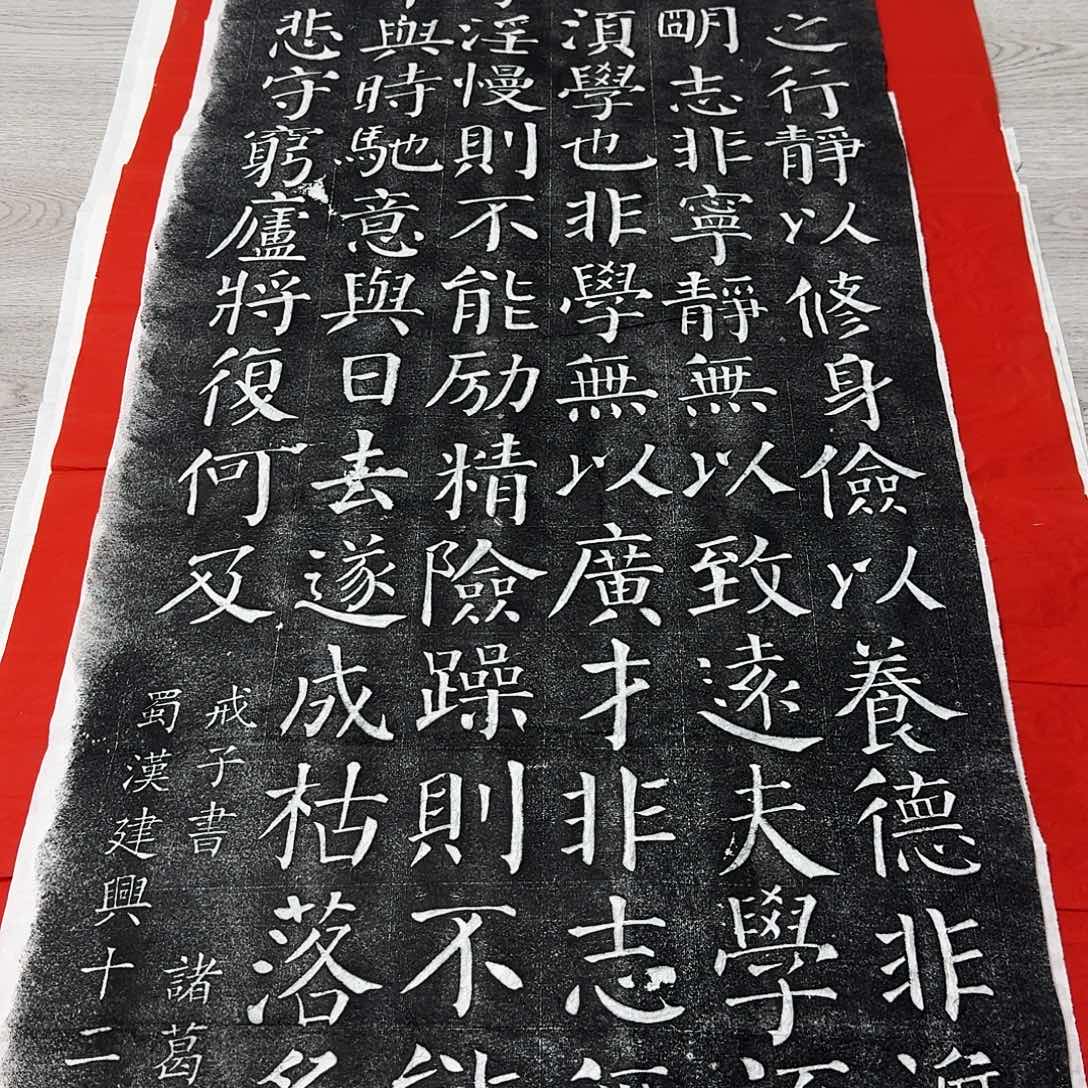 之行靜以修身儉以養德非
明志非寧靜無以致遠夫學
須學也非學無以廣才非志
淫慢則不能励精險躁則不
與時馳意與日去遂成枯落
悲守窮廬將復何及
戒子書 諸葛
蜀漢建興十二